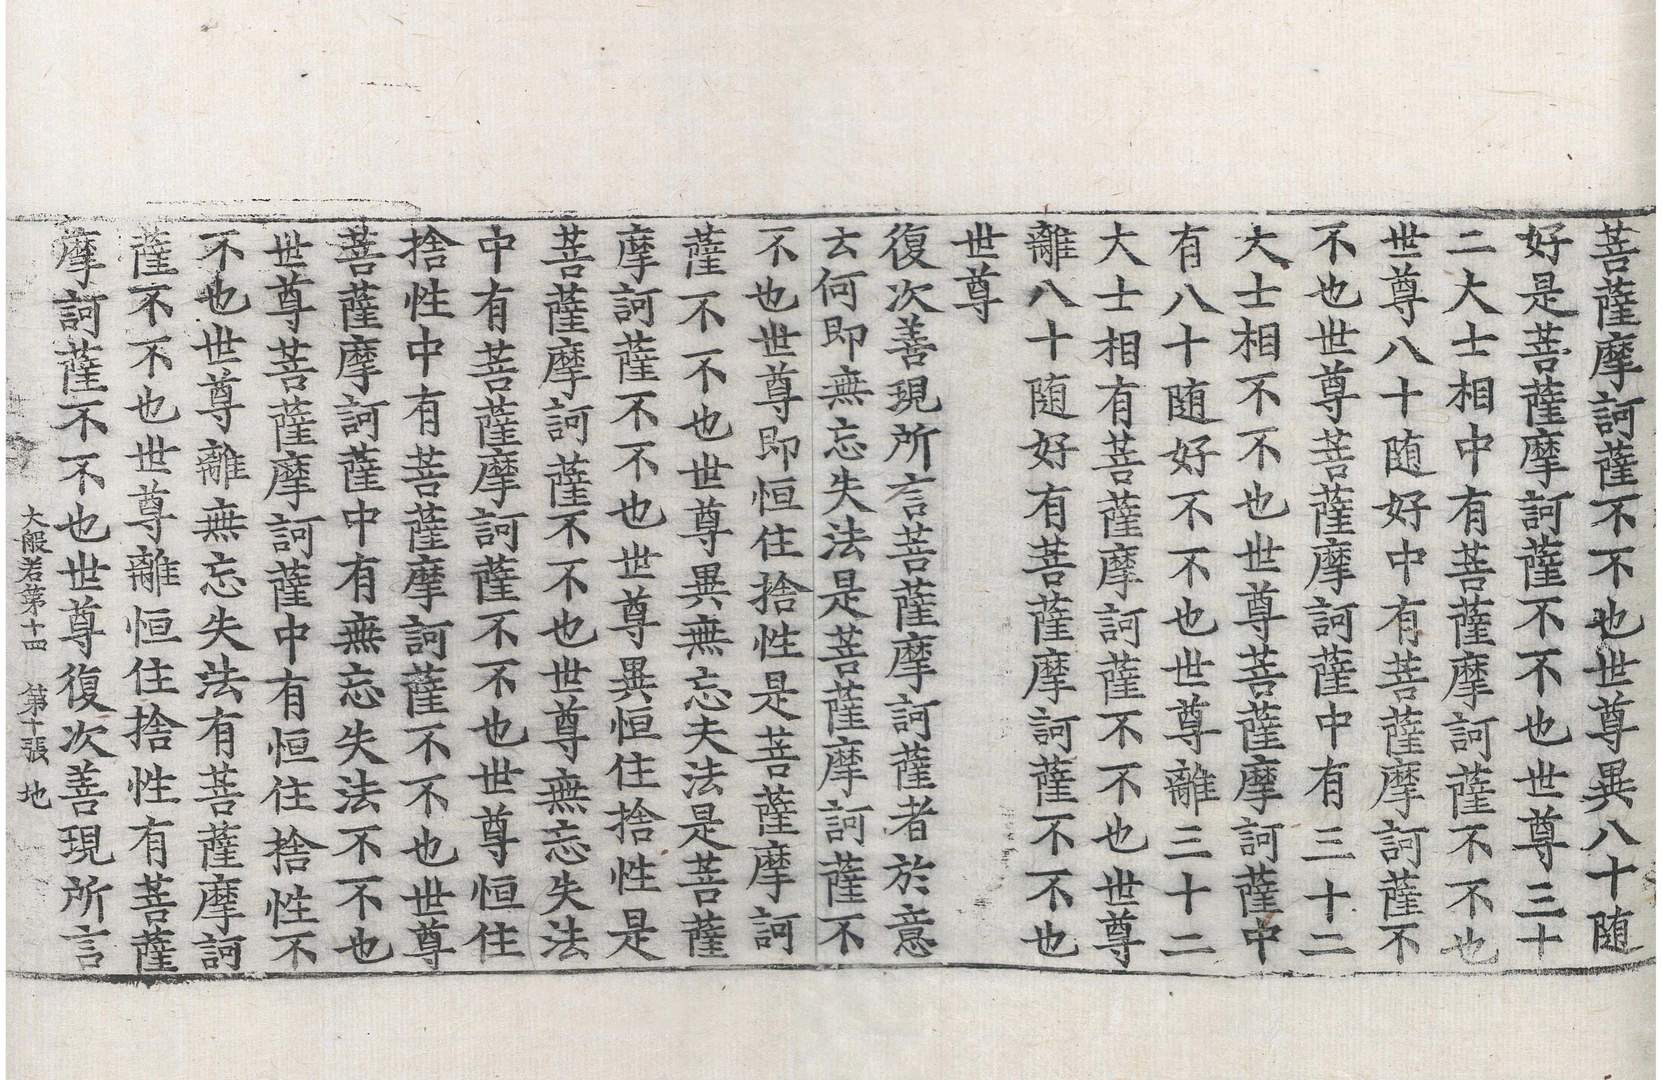 菩薩摩訶薩不不也世尊異八十随
好是菩薩摩訶薩不不也世尊三十
二大士相中有菩薩摩訶薩不不也
世尊八十随好中有菩薩摩訶薩不
不也世尊菩薩摩訶薩中有三十二
大士相不不也世尊菩薩摩訶薩中
有八十随好不不也世尊離三十二
大士相有菩薩摩訶薩不不也世尊
離八十随好有菩薩摩訶薩不不也
世尊
復次善現所言菩薩摩訶薩者於意
云何即無忘失法是菩薩摩訶薩不
不也世尊即恒住捨性是菩薩摩訶
薩不不也世尊異無忘失法是菩薩
摩訶薩不不也世尊異恒住捨性是
菩薩摩訶薩不不也世尊無忘失法
中有菩薩摩訶薩不不也世尊恒住
捨性中有菩薩摩訶薩不不也世尊
菩薩摩訶薩中有無忘失法不不也
世尊菩薩摩訶薩中有恒住捨性不
不也世尊離無忘失法有菩薩摩訶
薩不不也世尊離恒住捨性有菩薩
摩訶薩不不也世尊復次善現所言
大般若第十四 第十張 地